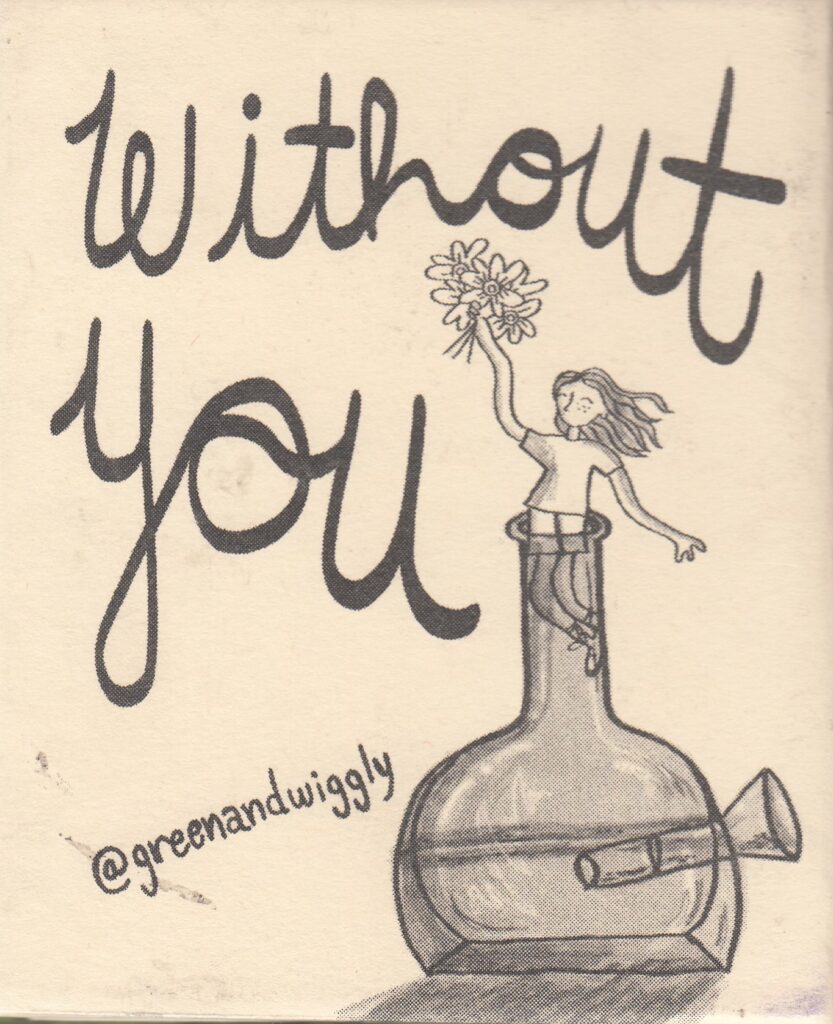 Without
you
@greenandwiggly